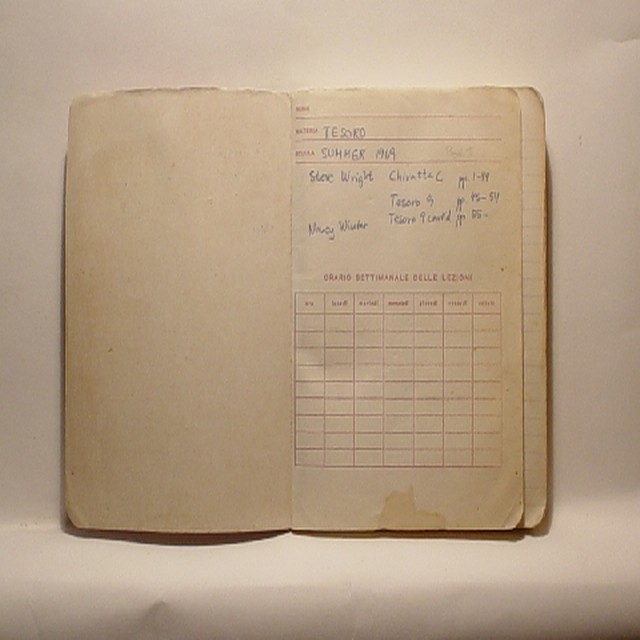 NOME
MATERIA TESORO
SCUOLA SUMMER 1969
Steve Wright Chiusetta C pp. 1-44
Tesoro 9 pp. 45-54
Nancy Winter Tesoro 9 cont'd pp 55-
ORARIO SETTIMANALE DELLE LEZIONI
ora lunedì martedì mercoledì giovedì venerdì sabato